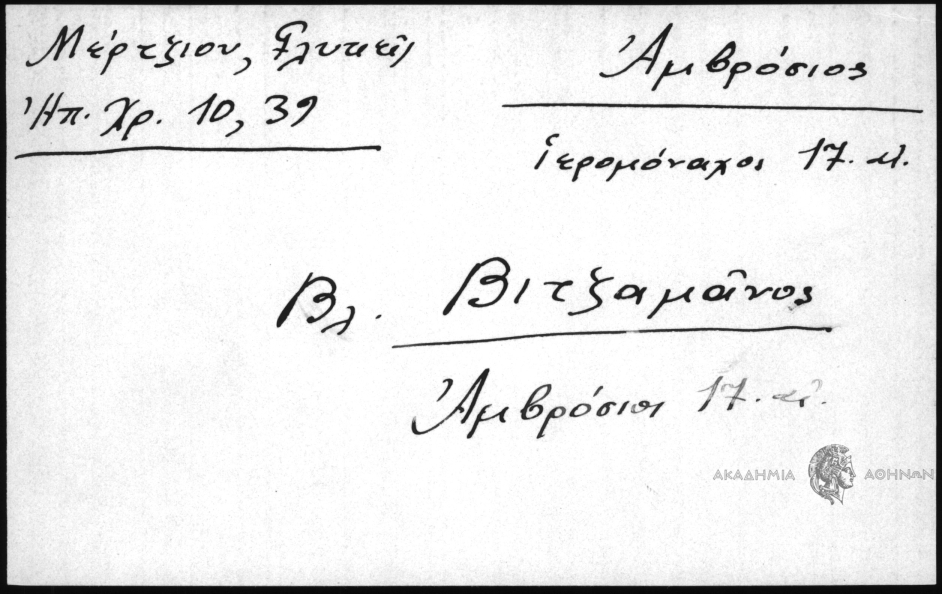 Μέρτζιου, Γλυκεῖς
Ἠπ. Χρ. 10, 39
Ἀμβρόσιος
ἱερομόναχος 17. αἰ.
Βλ. Βιτζαμᾶνος
Ἀμβρόσιος 17. αἰ.
ΑΚΑΔΗΜΙΑ ΑΘΗΝΩΝ